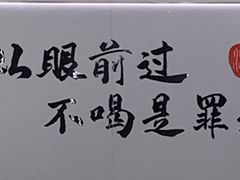 眼前过
不喝是罪